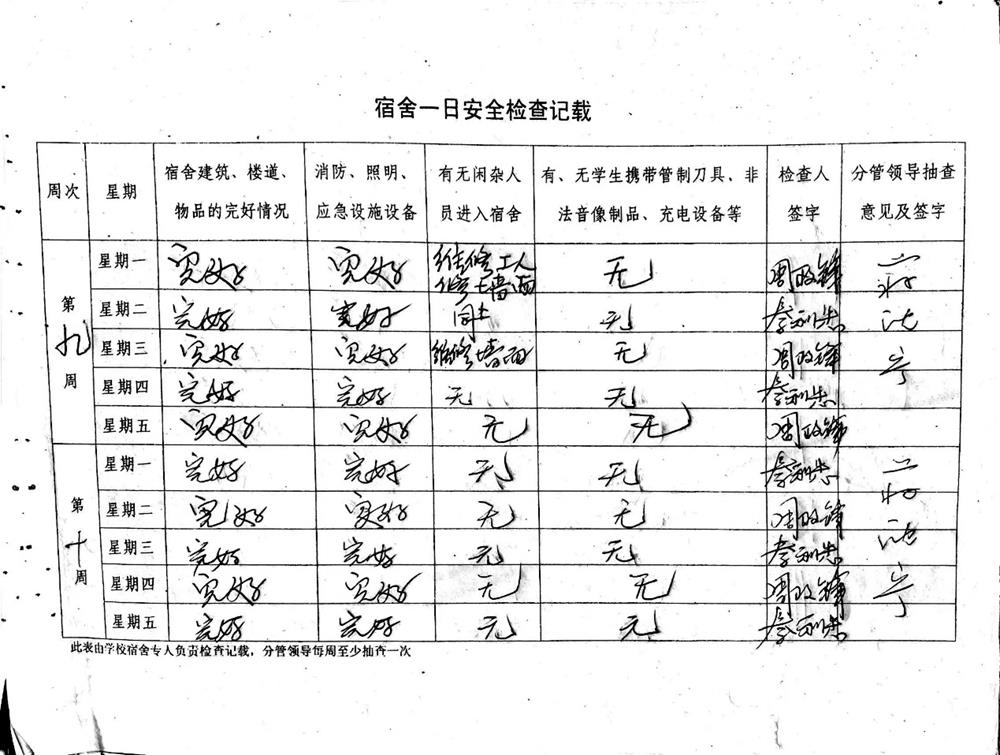 宿舍一日安全检查记载
周次 星期 宿舍建筑、楼道、物品的完好情况 消防、照明、应急设施设备 有无闲杂人员进入宿舍 有、无学生携带管制刀具、非法音像制品、充电设备等 检查人签字 分管领导抽查意见及签字
第九周
星期一 完好 完好 维修工人修墙面 无 周政锋
星期二 完好 完好 同上 无
星期三 完好 完好 维修墙面 无 周政锋
星期四 完好 完好 无 无
星期五 完好 完好 无 无 周政锋
第十周
星期一 完好 完好 无 无
星期二 完好 完好 无 无 周政锋
星期三 完好 完好 无 无
星期四 完好 完好 无 无 周政锋
星期五 完好 完好 无 无
此表由学校宿舍专人负责检查记载，分管领导每周至少抽查一次